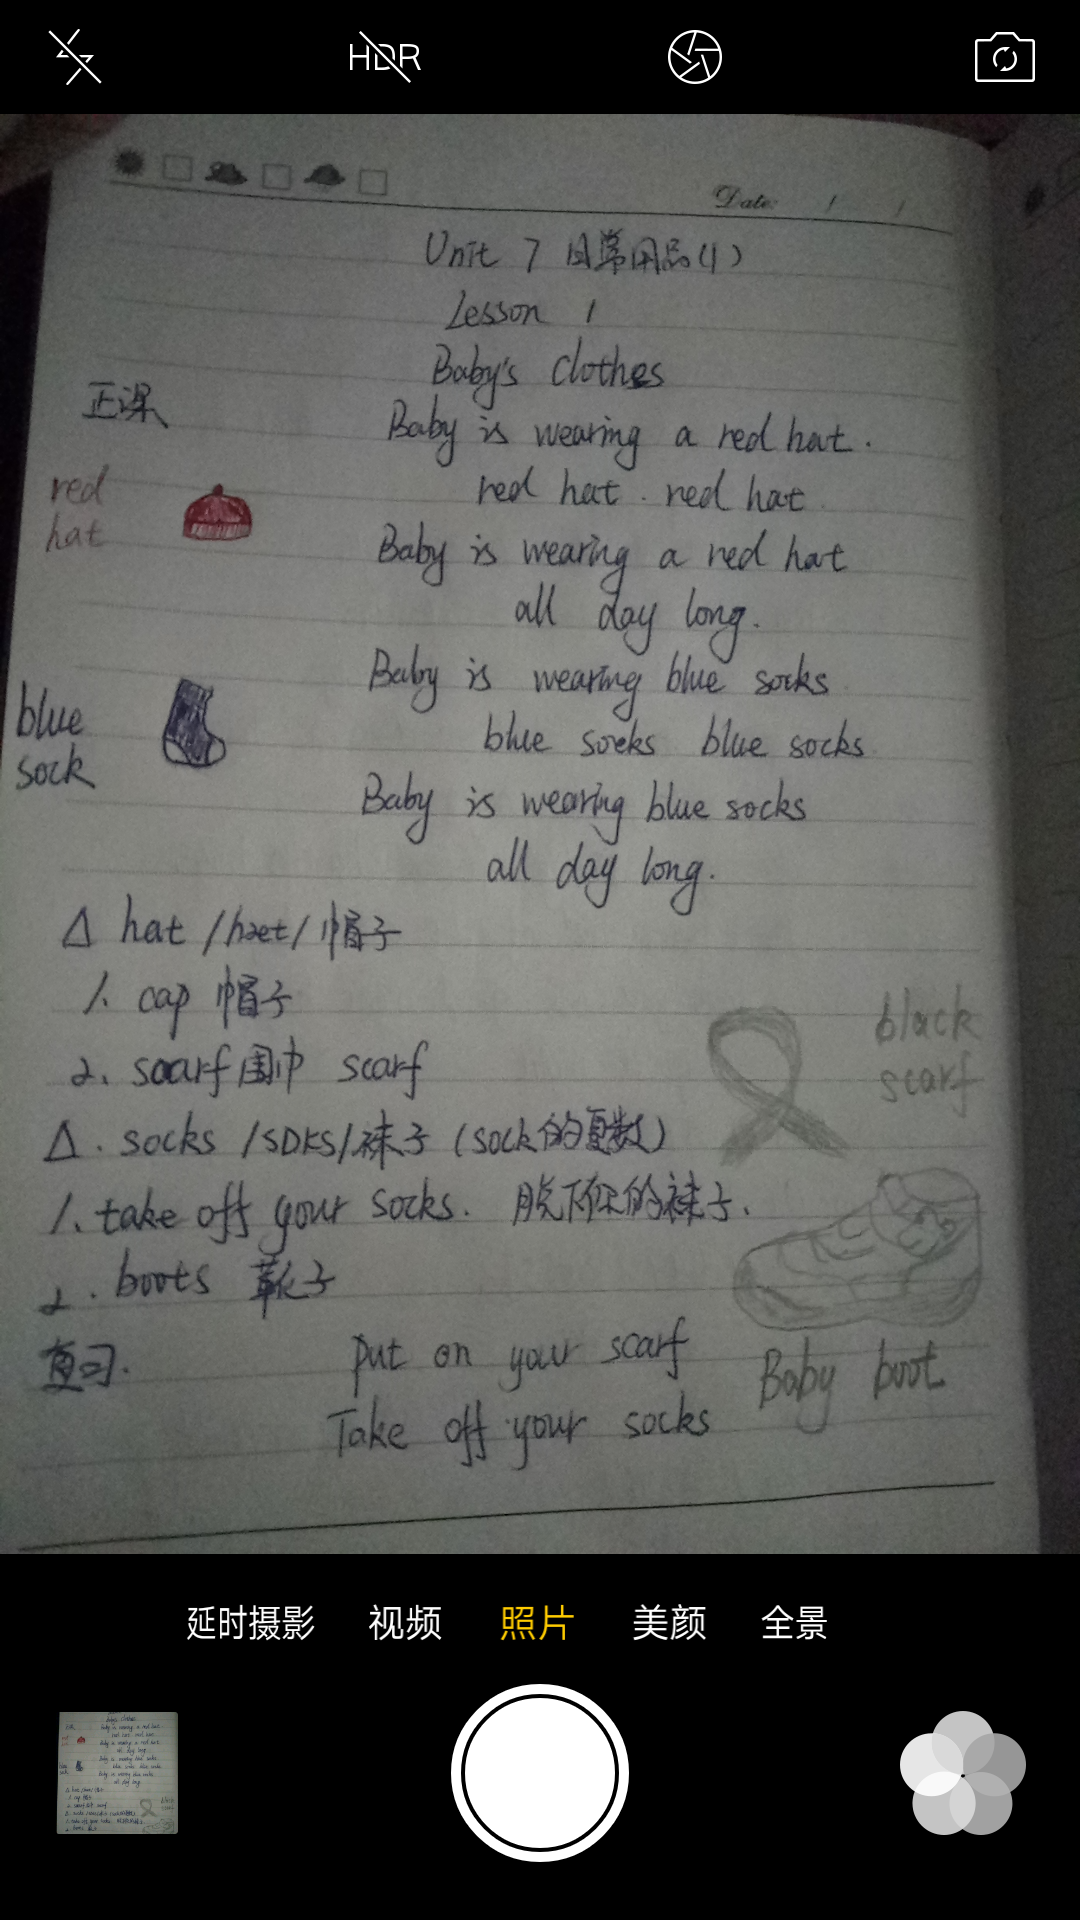 HDR
Date: / /
Unit 7 日常用品(1)
Lesson 1
Baby's clothes
正课
Baby is wearing a red hat.
red hat. red hat
red
hat
Baby is wearing a red hat
all day long.
Baby is wearing blue socks
blue
sock
blue socks blue socks
Baby is wearing blue socks
all day long.
△ hat /hæt/ 帽子
1. cap 帽子
2. scarf 围巾 scarf
black
scarf
△. socks /sɒks/ 袜子 (sock的复数)
1. take off your socks. 脱下你的袜子.
2. boots 靴子
复习.
Put on your scarf
Baby boot
Take off your socks
延时摄影 视频 照片 美颜 全景